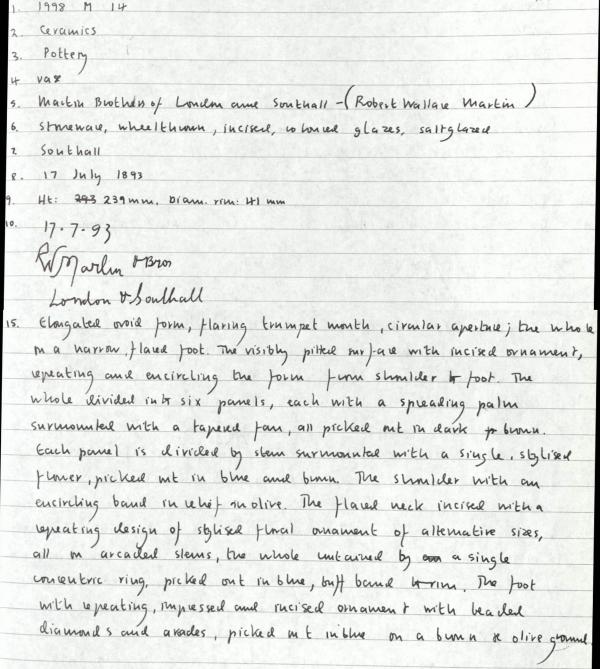 1. 1998 M 14
2. Ceramics
3. Pottery
4 vase
5. Martin Brothers of London and Southall - (Robert Wallace Martin)
6. Stoneware, wheelthrown, incised, coloured glazes, saltglazed
7. Southall
8. 17 July 1893
9. Ht: 293 239mm. Diam. rim: 41 mm
10. 17-7-93
RW Martin & Bros
London & Southall
15. Elongated ovoid form, flaring trumpet mouth, circular aperture; the whole
on a narrow, flared foot. The visibly pitted surface with incised ornament,
repeating and encircling the form from shoulder to foot. The
whole divided into six panels, each with a spreading palm
surmounted with a tapered fan, all picked out in dark brown.
Each panel is divided by stem surmounted with a single, stylised
flower, picked out in blue and brown. The shoulder with an
encircling band in relief in olive. The flared neck incised with a
repeating design of stylised floral ornament of alternative sizes,
all on arcaded stems, the whole contained by a single
concentric ring, picked out in blue, buff band to rim. The foot
with repeating, impressed and incised ornament with beaded
diamonds and arcades, picked out in blue on a brown & olive ground.